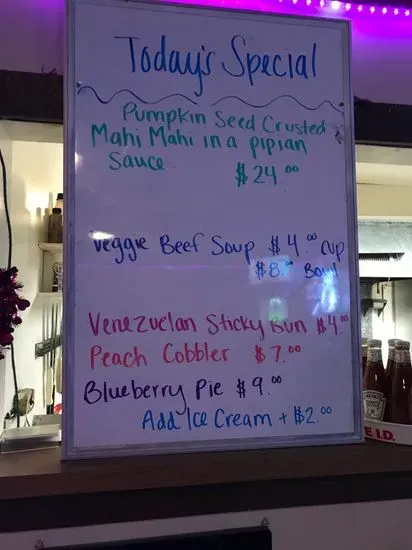 Today's Special
Pumpkin Seed Crusted
Mahi Mahi in a pipian
Sauce $24.00
Veggie Beef Soup $4.00 cup
$8.00 Bowl
Venezuelan Sticky Bun $4.00
Peach Cobbler $7.00
Blueberry Pie $9.00
Add Ice Cream + $2.00
HEINZ
E I.D.